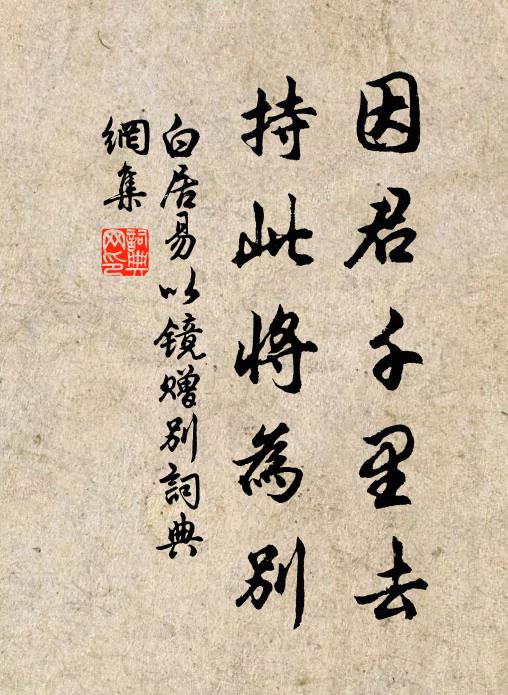 因君千里去
持此将為别
白居易以鏡贈别詞典
網集
詞典网印